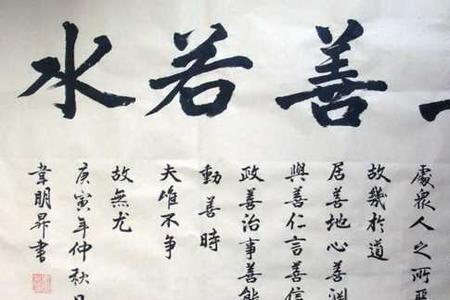 善若水
處衆人之所
故幾於道
居善地心善淵
與善仁言善信
政善治事善能
動善時
夫唯不争
故無尤
庚寅年仲秋
韋明昇書